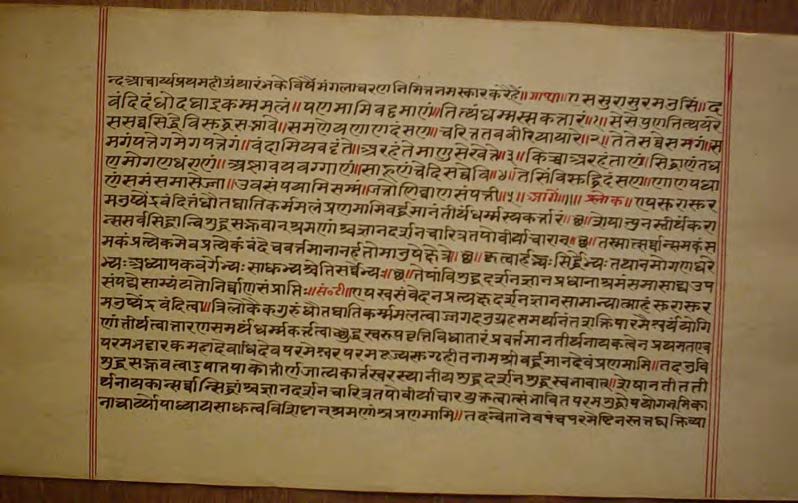 न्दआचार्य्यप्रथमहीग्रंथारंनकेविषैमंगलाचरणनिमित्तनमस्कारकरेहैं॥गाथा॥एससुरासुरमणुसिं॥द
वंदिदंधोदघाइकम्ममलं॥पणमामिवट्टमाणं॥तित्थंधम्मस्सकत्तारं॥१॥सेसेपुणतित्थयरे
ससव्वसिद्धेविसुद्धसब्भावे॥समणेयणाणदंसण॥चरित्ततववीरियायारे॥२॥तेतेसव्वेसमगं॥स
मगंपत्तेगमेगपत्तेगं॥वंदामियवट्टंते॥अरहंतेमाणुसेखेत्ते॥३॥किच्चाअरहंताणं॥सिद्धाणंतह
णमोगणहराणं॥अज्झावयवग्गाणं॥साहूणंचेदिसव्वेसिं॥४॥तेसिंविसुद्धदंसण॥णाणपहा
णंसमंसमासेज्जा॥उवसंपयामिसम्मं॥जत्तोणिव्वाणसंपत्ती॥५॥जागं॥॥श्लोक॥एषसुरासुर
मनुष्येंद्रवंदितंधौतघातिकर्ममलंप्रणमामिवर्द्धमानंतीर्थंधर्म्मस्यकर्त्तारं॥छ॥शेषान्पुनस्तीर्थकरा
न्ससर्वसिद्धान्विशुद्धसद्भावान्श्रमणांश्चज्ञानदर्शनचारित्रतपोवीर्याचारान्॥छ॥तांस्तान्सर्वान्समकंस
मकंप्रत्येकमेवप्रत्येकंवंदेचवर्त्तमानानर्हतोमानुषेक्षेत्रे॥छ॥कृत्वार्हद्भ्यःसिद्धेभ्यःतथानमोगणधरे
भ्यःअध्यापकवर्गेभ्यःसाधुभ्यश्चेतिसर्वेभ्यः॥छ॥तेषांविशुद्धदर्शनज्ञानप्रधानाश्रमंसमासाद्यउप
संपद्येसाम्यंयतोनिर्वाणसंप्राप्तिः॥सं०टी॥एषस्वसंवेदनप्रत्यक्षदर्शनज्ञानसामान्यात्माहंसुरासुर
मनुष्येंद्रवंदितत्वात्त्रिलोकैकगुरुंधौतघातिकर्म्ममलत्वाज्जगदनुग्रहसमर्थानंतशक्तिपारमैश्वर्यंयोगि
णांतीर्थत्वात्तारणसमर्थंधर्म्मकर्त्तृत्वाच्छुद्धस्वरूपवृत्तिविधातारंप्रवर्त्तमानतीर्थनायकत्वेनप्रथमतएव
परमभट्टारकमहादेवाधिदेवपरमेश्वरपरमपूज्यसुगृहीतनामश्रीवर्द्धमानदेवंप्रणमामि॥तदनुवि
शुद्धसद्भावत्वाउपात्तपाकोत्तीर्णजात्यकार्त्तस्वरस्थानीयशुद्धदर्शनशुद्धस्वभावान्॥शेषानतीतती
र्थनायकान्सर्वान्सिद्धांश्चज्ञानदर्शनचारित्रतपोवीर्याचारयुक्तत्वात्संभावितपरमशुद्धोपयोगभूमिका
नाचार्य्योपाध्यायसाधुत्वविशिष्टान्श्रमणांश्चप्रणमामि॥तदन्वेतानेवपंचपरमेष्टिनस्तत्तद्व्यक्तिव्या